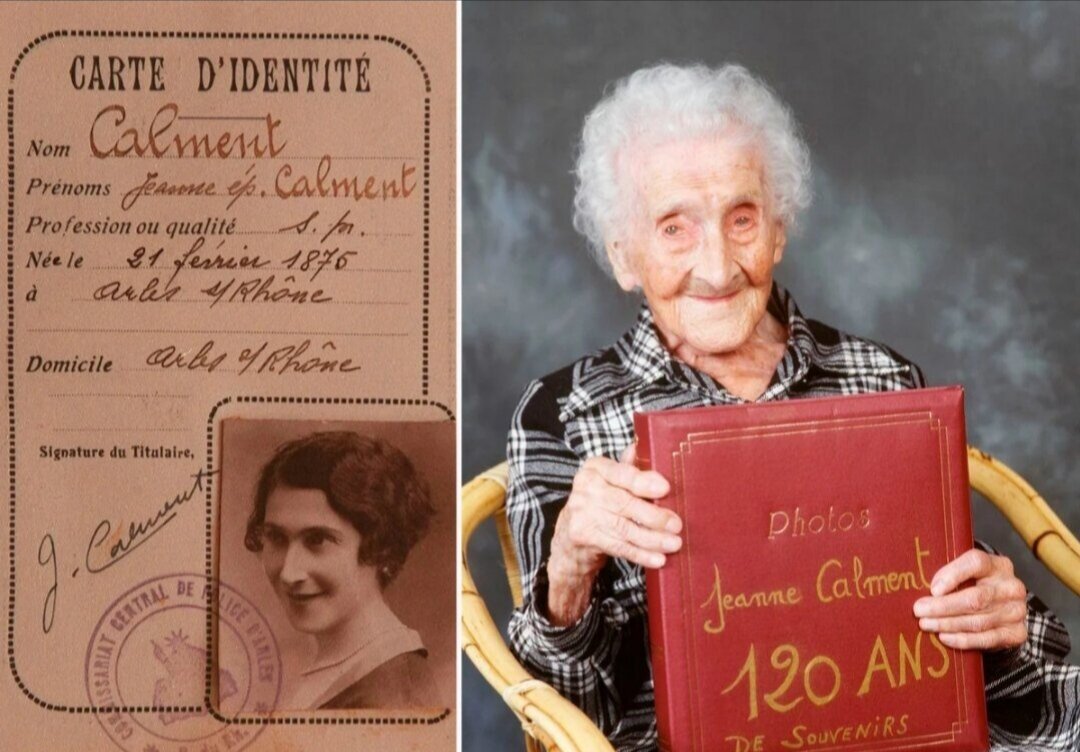 CARTE D'IDENTITÉ
Nom Calment
Prénoms Jeanne ép. Calment
Profession ou qualité s. pr.
Née le 21 février 1875
à Arles s/Rhône
Domicile Arles s/Rhône
Signature du Titulaire,
J. Calment
COMMISSARIAT CENTRAL DE POLICE D'ARLES
Photos
Jeanne Calment
120 ANS
DE SOUVENIRS